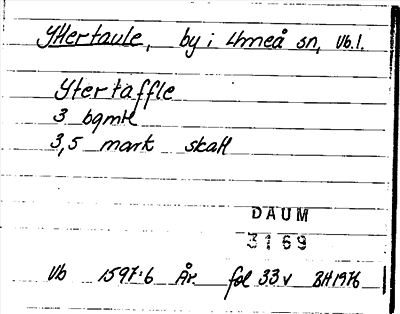 Yttertavle, by i Umeå sn, Vb.l.
Yter taffle
3 bgmtl
3,5 mark skatt
DAUM
3169
Vb 1597:6 År fol 33v BH 1976